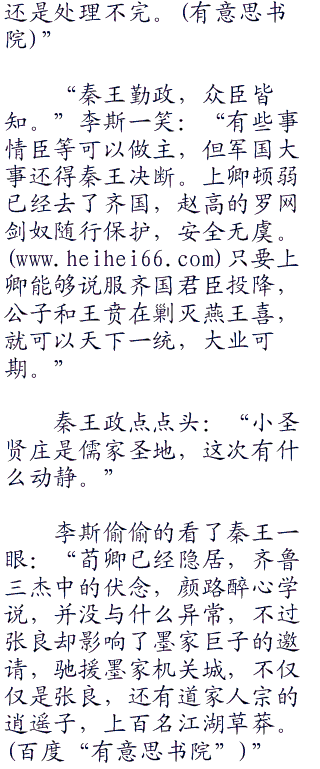 还是处理不完。(有意思书
院)”
“秦王勤政，众臣皆
知。”李斯一笑：“有些事
情臣等可以做主，但军国大
事还得秦王决断。上卿顿弱
已经去了齐国，赵高的罗网
剑奴随行保护，安全无虞。
(www.heihei66.com)只要上
卿能够说服齐国君臣投降，
公子和王贲在剿灭燕王喜，
就可以天下一统，大业可
期。”
秦王政点点头：“小圣
贤庄是儒家圣地，这次有什
么动静。”
李斯偷偷的看了秦王一
眼：“荀卿已经隐居，齐鲁
三杰中的伏念，颜路醉心学
说，并没与什么异常，不过
张良却影响了墨家巨子的邀
请，驰援墨家机关城，不仅
仅是张良，还有道家人宗的
逍遥子，上百名江湖草莽。
(百度“有意思书院”)”